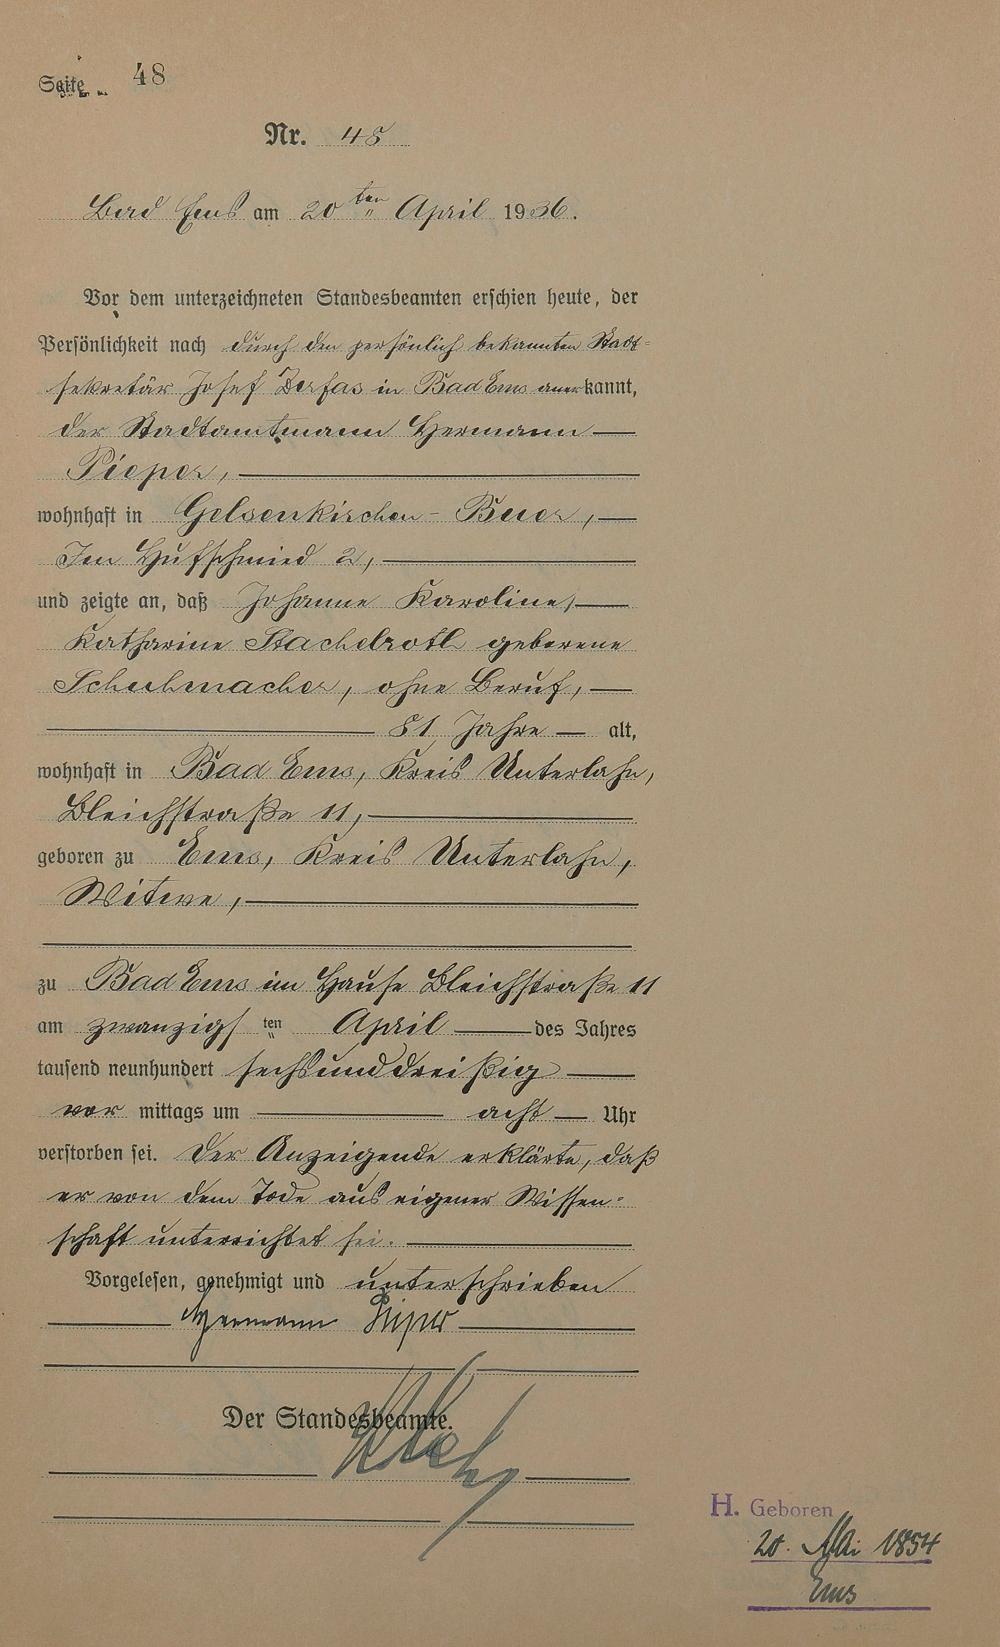 Seite 48
Nr. 48
Bad Ems am 20ten April 1936.
Vor dem unterzeichneten Standesbeamten erschien heute, der
Persönlichkeit nach durch den persönlich bekannten Stadt-
sekretär Josef in Bad Ems anerkannt,
der Stadtamtmann Hermann
Pieper,
wohnhaft in Gelsenkirchen-Buer,
Im Hufschmied 2,
und zeigte an, daß Johanne Karoline,
Katharine Stachelroth geborene
Schuhmacher, ohne Beruf,
81 Jahre alt,
wohnhaft in Bad Ems, Kreis Unterlahn,
Bleichstraße 11,
geboren zu Ems, Kreis Unterlahn,
Witwe,
zu Bad Ems im Hause Bleichstraße 11
am zwanzigsten April des Jahres
tausend neunhundert sechsunddreißig
vor mittags um acht Uhr
verstorben sei. Der Anzeigende erklärte, daß
er von dem Tode aus eigener Wissen-
schaft unterrichtet sei.
Vorgelesen, genehmigt und unterschrieben
Hermann Pieper
Der Standesbeamte.
H. Geboren
20. Mai 1854
Ems